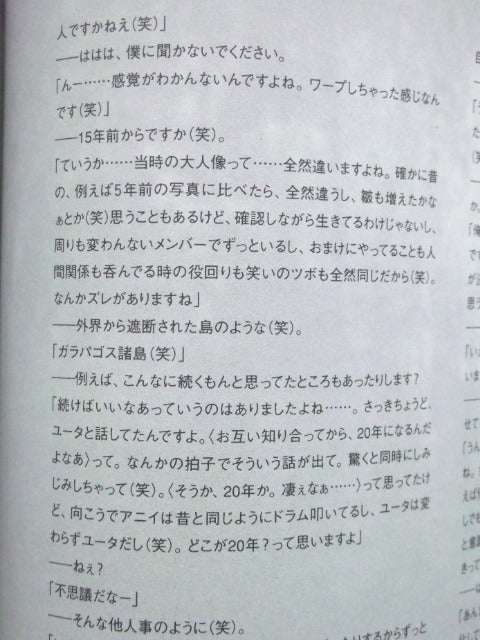 人ですかねえ(笑)」
――ははは、僕に聞かないでください。
「んー……感覚がわかんないんですよね。ワープしちゃった感じなん
です(笑)」
――15年前からですか(笑)。
「ていうか……当時の大人像って……全然違いますよね。確かに昔
の、例えば5年前の写真に比べたら、全然違うし、皺も増えたかな
ぁとか(笑)思うこともあるけど、確認しながら生きてるわけじゃないし、
周りも変わんないメンバーでずっといるし、おまけにやってることも人
間関係も呑んでる時の役回りも笑いのツボも全然同じだから(笑)。
なんかズレがありますね」
――外界から遮断された島のような(笑)。
「ガラパゴス諸島(笑)」
――例えば、こんなに続くもんと思ってたところもあったりします?
「続けばいいなあっていうのはありましたよね……。さっきちょうど、
ユータと話してたんですよ。〈お互い知り合ってから、20年になるんだ
よなあ〉って。なんかの拍子でそういう話が出て。驚くと同時にしみ
じみしちゃって(笑)。〈そうか、20年か。凄ぇなぁ……〉って思ってたけ
ど、向こうでアニイは昔と同じようにドラム叩いてるし、ユータは変
わらずユータだし(笑)。どこが20年?って思いますよ」
――ねぇ?
「不思議だなー」
――そんな他人事のように(笑)。